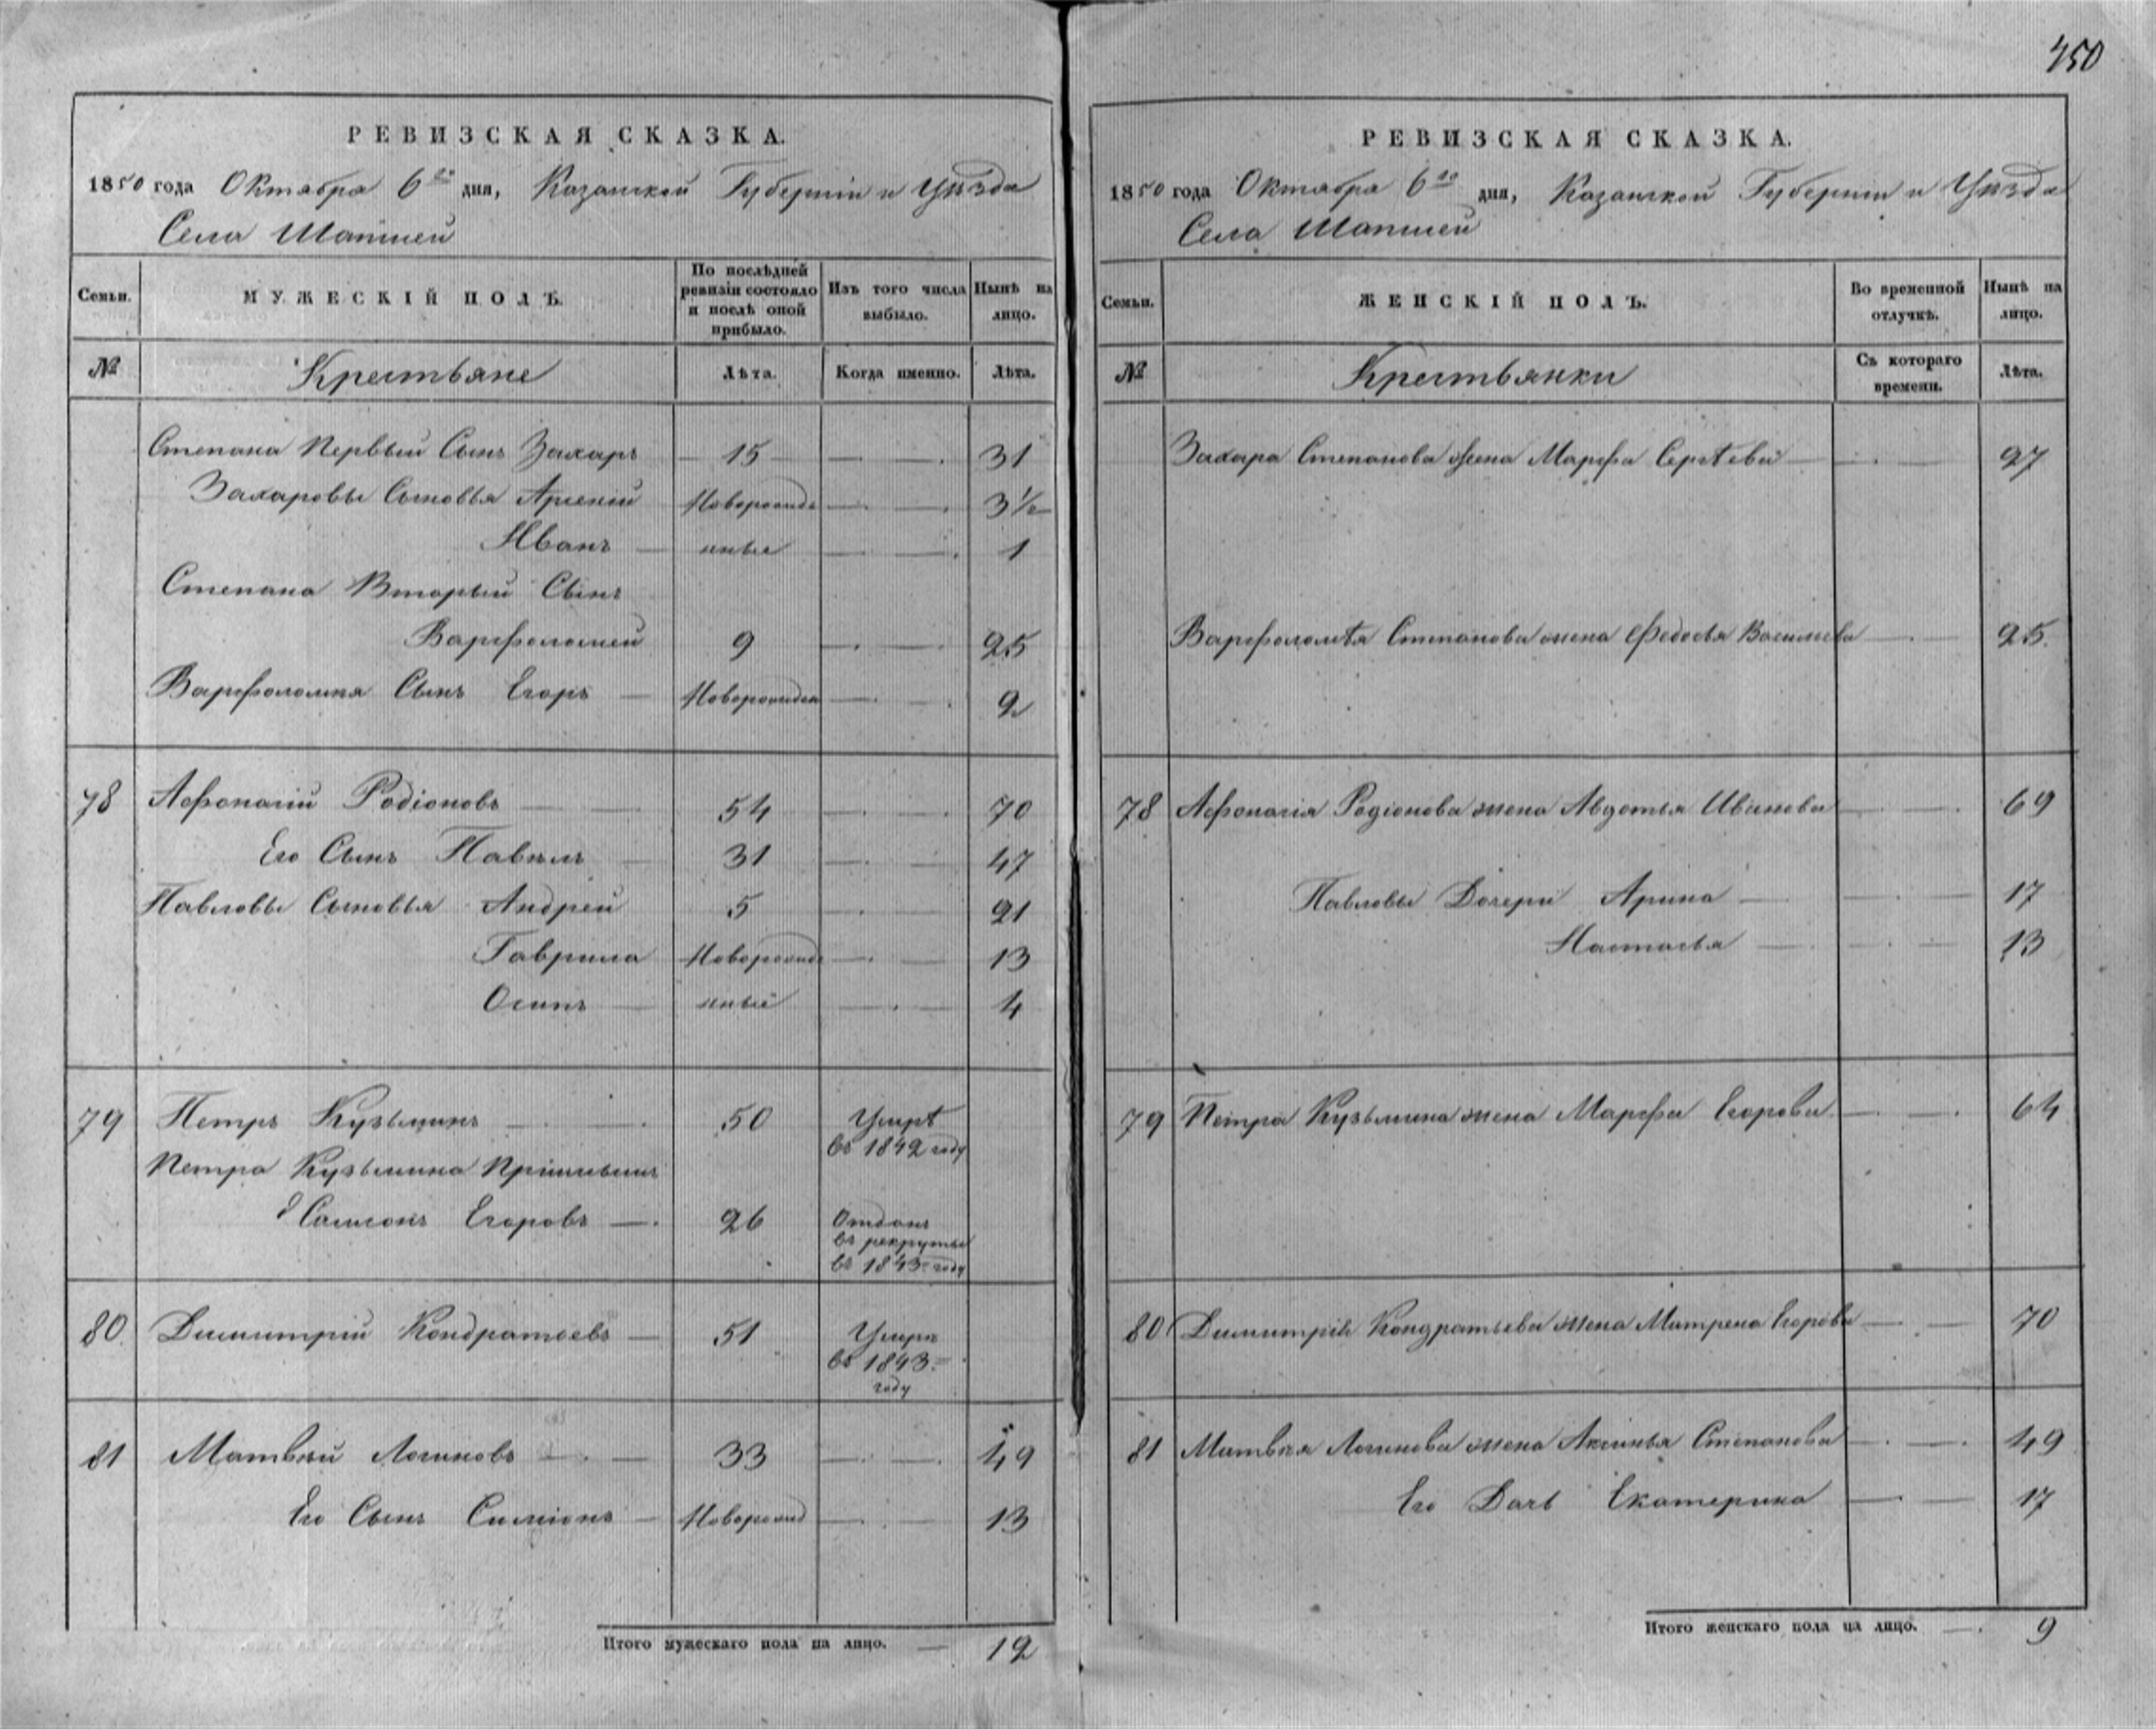 450
РЕВИЗСКАЯ СКАЗКА.
1850 года Октября 6го дня, Казанской Губерніи и Уѣзда
Села Шапшей
Семьи. МУЖЕСКІЙ ПОЛЪ. По послѣдней ревизіи состояло и послѣ оной прибыло. Изъ того числа выбыло. Нынѣ на лицо.
№ Крестьяне Лѣта. Когда именно. Лѣта.
Степана Первый Сынъ Захаръ 15 — — 31
Захаровы Сыновья Арсеній Новорожд — — 3½
Иванъ — енные — — 1
Степана Вторый Сынъ
Варфоломей 9 — — 25
Варфоломея Сынъ Егоръ — Новорожден — — 2
78 Афонасій Родіоновъ — — 54 — — 70
Его Сынъ Павелъ — 31 — — 47
Павловы Сыновья Андрей 5 — — 21
Гаврила Новорожд — — 13
Осипъ — енные — — 4
79 Петръ Кузьминъ — — 50 Умре
въ 1842 году
Петра Кузьмина
Самсонъ Егоровъ — 26 Отданъ
въ рекруты
въ 1843 году
80 Димитрій Кондратьевъ — 51 Умре
въ 1843
году
81 Матвѣй Логиновъ — — 33 — — 49
Его Сынъ Симіонъ — Новорожд — — 13
Итого мужескаго пола на лицо. — 12
РЕВИЗСКАЯ СКАЗКА.
1850 года Октября 6го дня, Казанской Губерніи и Уѣзда
Села Шапшей
Семьи. ЖЕНСКІЙ ПОЛЪ. Во временной отлучкѣ. Нынѣ на лицо.
№ Крестьянки Съ котораго времени. Лѣта.
Захара Степанова жена Марфа Сергѣева — — 27
Варфоломѣя Степанова жена Федосья Васильева — — 25
78 Афонасія Родіонова жена Авдотья Иванова — — 69
Павловы Дочери Арина — — — 17
Настасья — — — 13
79 Петра Кузьмина жена Марфа Егорова — — 64
80 Димитрія Кондратьева жена Матрена Егорова — — 70
81 Матвѣя Логинова жена Аксинья Степанова — — 49
Его Дочь Екатерина — — 17
Итого женскаго пола на лицо. — 9